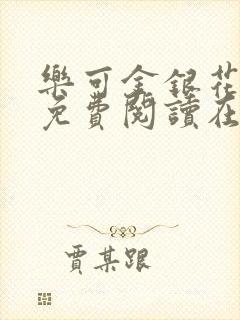 樂可金銀花
免費閱讀在
賈某跟